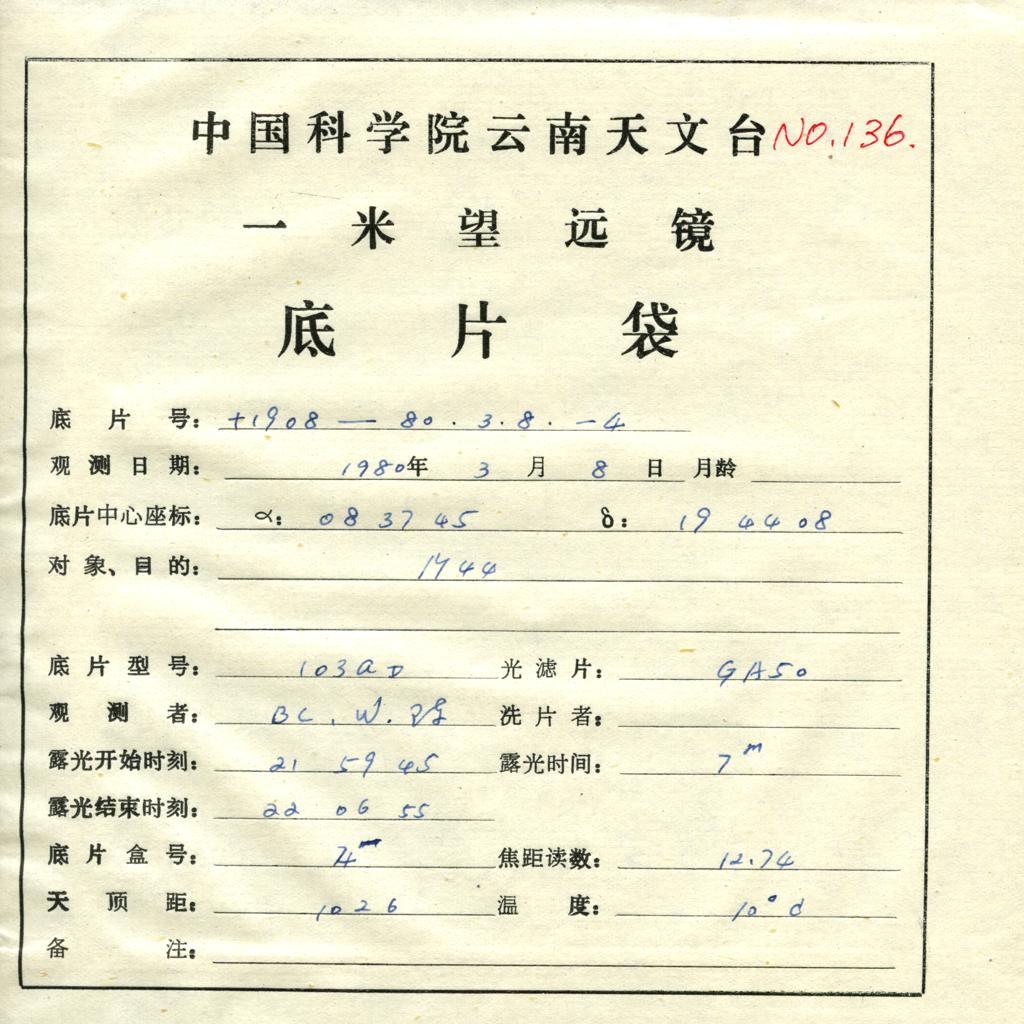 中国科学院云南天文台 NO.136.
一米望远镜
底片袋
底片号: +1908 — 80.3.8.-4
观测日期: 1980年 3 月 8 日 月龄
底片中心座标: α: 08 37 45 δ: 19 44 08
对象、目的: M44
底片型号: 103aD 光滤片: GA50
观测者: BC. W. 洗片者:
露光开始时刻: 21 59 45 露光时间: 7m
露光结束时刻: 22 06 55
底片盒号: 焦距读数: 12.74
天顶距: 1026 温度: 10°
备注: